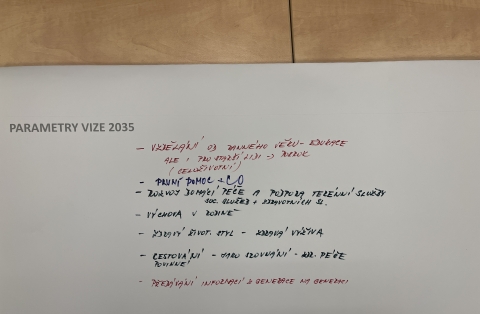 PARAMETRY VIZE 2035
- VZDĚLÁNÍ OD RANNÉHO VĚKU - EDUKACE
ALE I PRO STARŠÍ LIDI =>
(CELOŽIVOTNÍ)
- PRVNÍ POMOC + CO
- ROZVOJ DOMÁCÍ PÉČE A PODPORA TERÉNNÍ SLUŽBY
SOC. SLUŽEB + ZDRAVOTNÍCH SL.
- VÝCHOVA V RODINĚ
- ZDRAVÝ ŽIVOT. STYL - ZDRAVÁ VÝŽIVA
- CESTOVÁNÍ - JAKO SROVNÁNÍ - ZDR. PÉČE
POVINNÉ
- PŘEDÁVÁNÍ INFORMACÍ Z GENERACE NA GENERACI